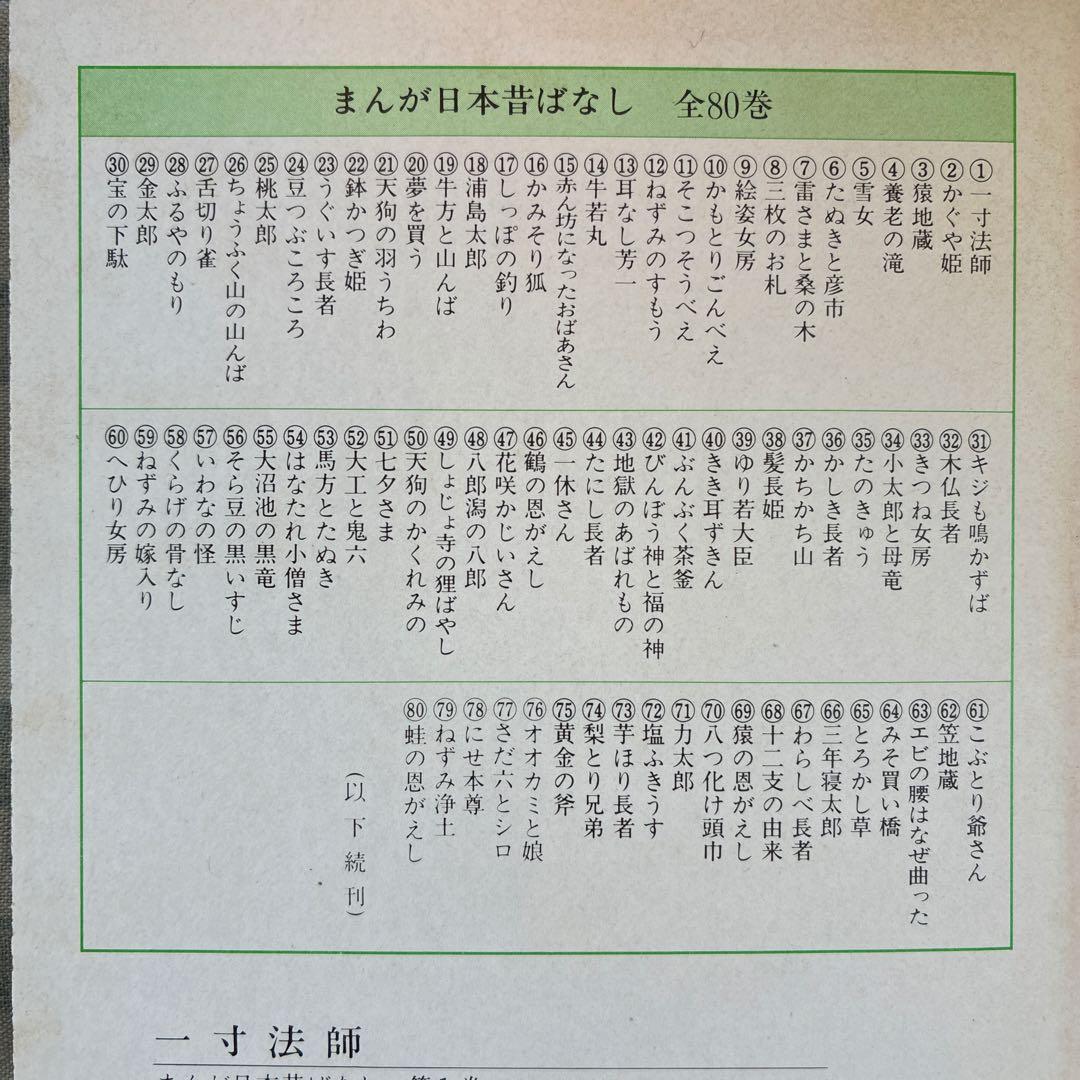 まんが日本昔ばなし 全80巻
①一寸法師
②かぐや姫
③猿地蔵
④養老の滝
⑤雪女
⑥たぬきと彦市
⑦雷さまと桑の木
⑧三枚のお札
⑨絵姿女房
⑩かもとりごんべえ
⑪そこつそうべえ
⑫ねずみのすもう
⑬耳なし芳一
⑭牛若丸
⑮赤ん坊になったおばあさん
⑯かみそり狐
⑰しっぽの釣り
⑱浦島太郎
⑲牛方と山んば
⑳夢を買う
㉑天狗の羽うちわ
㉒鉢かつぎ姫
㉓うぐいす長者
㉔豆つぶころころ
㉕桃太郎
㉖ちょうふく山の山んば
㉗舌切り雀
㉘ふるやのもり
㉙金太郎
㉚宝の下駄
㉛キジも鳴かずば
㉜木仏長者
㉝きつね女房
㉞小太郎と母竜
㉟たのきゅう
㊱かしき長者
㊲かちかち山
㊳髪長姫
㊴ゆり若大臣
㊵きき耳ずきん
㊶ぶんぶく茶釜
㊷びんぼう神と福の神
㊸地獄のあばれもの
㊹たにし長者
㊺一休さん
㊻鶴の恩がえし
㊼花咲かじいさん
㊽八郎潟の八郎
㊾しょじょ寺の狸ばやし
㊿天狗のかくれみの
51七夕さま
52大工と鬼六
53馬方とたぬき
54はなたれ小僧さま
55大沼池の黒竜
56そら豆の黒いすじ
57いわなの怪
58くらげの骨なし
59ねずみの嫁入り
60へひり女房
61こぶとり爺さん
62笠地蔵
63エビの腰はなぜ曲った
64みそ買い橋
65とろかし草
66三年寝太郎
67わらしべ長者
68十二支の由来
69猿の恩がえし
70八つ化け頭巾
71力太郎
72塩ふきうす
73芋ほり長者
74梨とり兄弟
75黄金の斧
76オオカミと娘
77さだ六とシロ
78にせ本尊
79ねずみ浄土
80蛙の恩がえし
（以下続刊）
一寸法師
まんが日本昔ばなし 第1巻